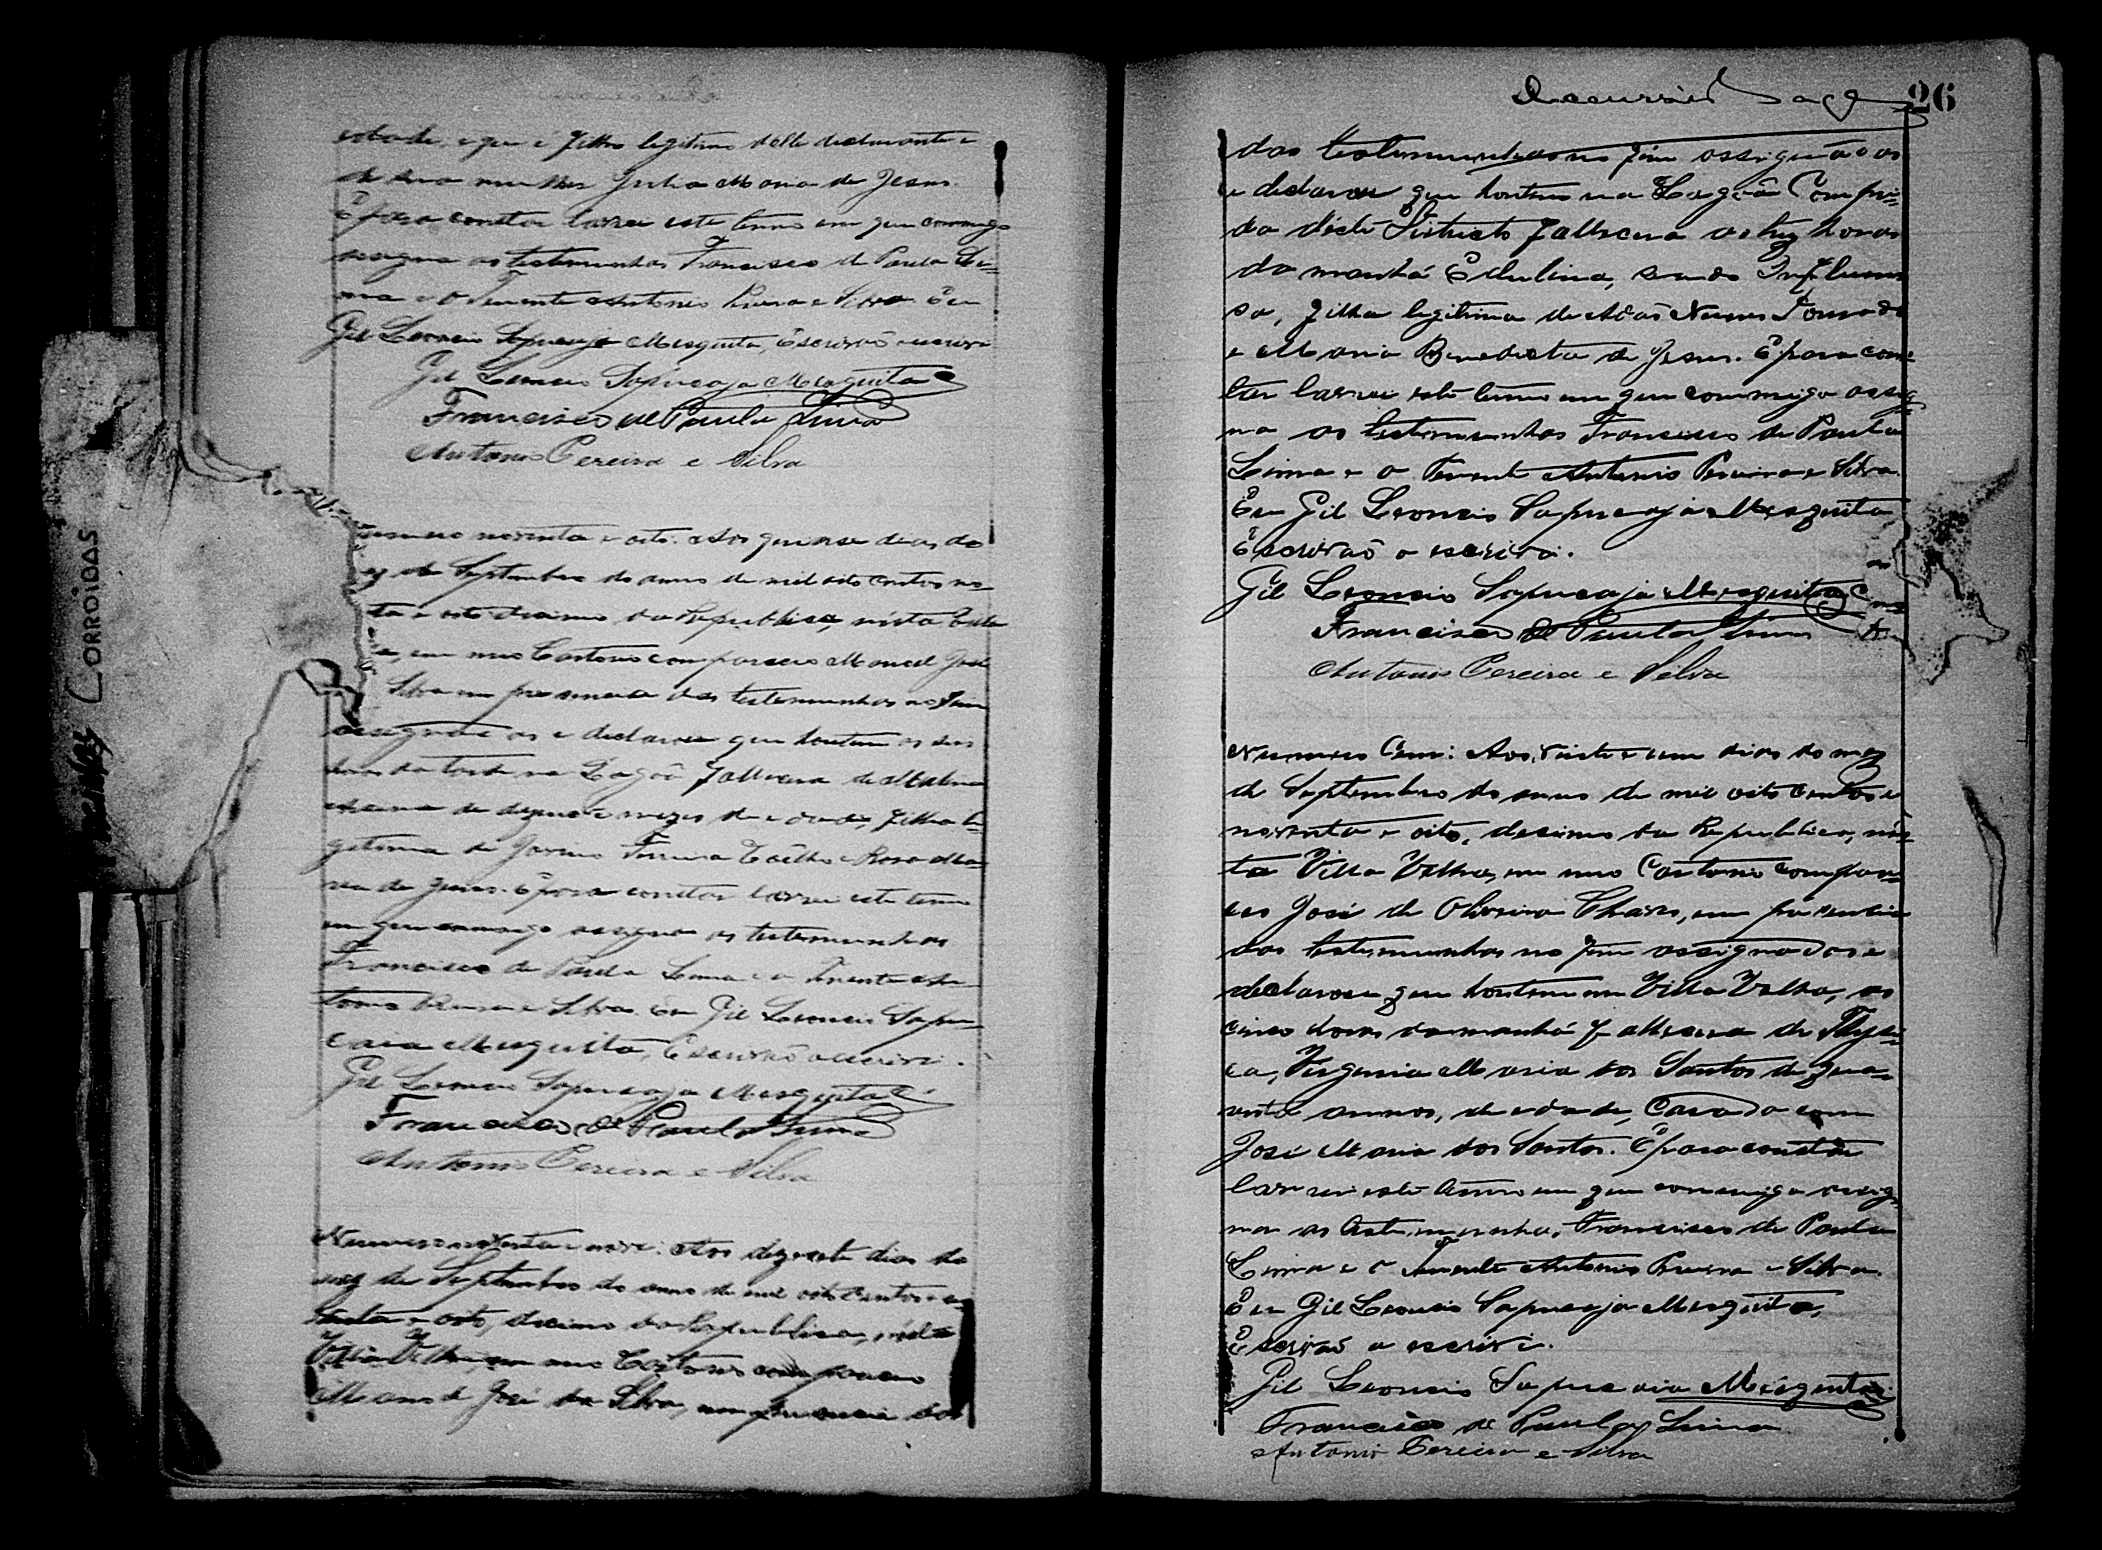 edade, e que é filho legitimo delle declarante e
de sua mulher Julia Maria de Jesus.
E para constar lavrei este termo em que commigo
assigna as testemunhas Francisco de Paula Li-
ma e o Tenente Antonio Pereira e Silva. Eu
Gil Leoncio Sapucaja Mesquita, Escrivão o escrevi
Gil Leoncio Sapucaja Mesquita
Francisco de Paula Lima
Antonio Pereira e Silva
Numero noventa e oito. Aos quinze dias do
mez de Septembro do anno de mil oito centos no-
ta e oito decimo da Republica, nésta Villa
em meu Cartorio compareceu Manoel José
Silva em presencia das testemunhas no fim
assignadas e declarou que hontem as seis
horas da tarde na Lagôa falleceu de
de dezenove mezes de edade, filha le-
gitima de Ferreira Coêlho e Rosa Ma-
ria de Jesus. E para constar lavrei este termo
em que commigo assigna as testemunhas
Francisco de Paula Lima e o Tenente An-
tonio Pereira e Silva. Eu Gil Leoncio Sapu-
caia Mesquita, Escrivão o escrevi.
Gil Leoncio Sapucaja Mesquita
Francisco de Paula Lima
Antonio Pereira e Silva
Numero noventa e nove. Aos dezesete dias do
mez de Septembro do anno de mil oito centos e no-
venta e oito, decimo da Republica, nésta
Villa Velha em meu Cartorio compareceu
Manoel José da Silva, em presencia das
CORROIDAS
26
das testemunhas no fim assignadas
e declarou que hontem na Lagôa Compri-
da déste Districto falleceu as dez horas
da manhã Edulina, sendo Influen
sa, filha legitima de Adão Nunes Dourado
e Maria Benedicta de Jesus. E para cons-
tar lavrei este termo em que commigo assig-
na as testemunhas Francisco de Paula
Lima e o Tenente Antonio Pereira e Silva.
Eu Gil Leoncio Sapucaja Mesquita
Escrivão o escrevi.
Gil Leoncio Sapucaja Mesquita
Francisco de Paula Lima
Antonio Pereira e Silva
Numero Cem: Aos vinte e um dias do mez
de Septembro do anno de mil oito centos e
noventa e oito, decimo da Republica, nés-
ta Villa Velha, em meu Cartorio compare-
ceo José de Oliveira Chaves, em presencia
das testemunhas no fim assignadas e
declarou que hontem em Villa Velha, as
cinco horas da manhã falleceu de Thysi-
ca, Virginia Maria dos Santos de qua-
renta annos, de edade, Casada com
José Maria dos Santos. E para constar
lavrei este termo em que commigo assig-
na as testemunhas, Francisco de Paula
Lima e o Tenente Antonio Pereira e Silva.
Eu Gil Leoncio Sapucaja Mesquita,
Escrivão o escrevi.
Gil Leoncio Sapucaia Mesquita
Francisco de Paula Lima
Antonio Pereira e Silva